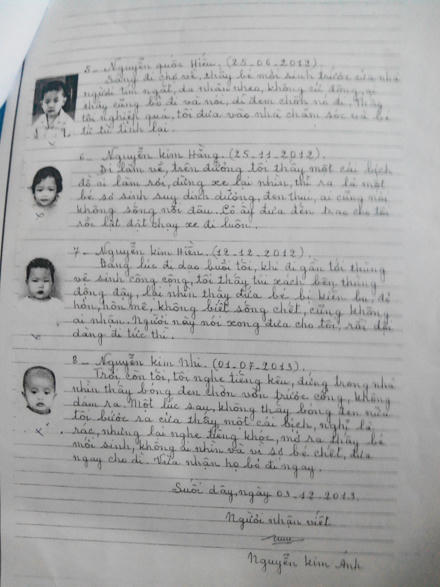 5_ Nguyễn quốc Hiếu. (25_06_2012)
Sáng đi chợ về, thấy bé mới sinh trước cửa nhà
người tím ngắt, da nhăn nheo, không cử động, ai
thấy cũng bỏ đi và nói, đi đem chôn nó đi. Thấy
tội nghiệp quá, tôi đưa vào nhà chăm sóc và bé
từ từ tỉnh lại.
6_ Nguyễn kim Hằng. (25_11_2012).
Đi làm về, trên đường tôi thấy một cái bịch
đồ ai làm rơi, dừng xe lại nhìn, thì ra là một
bé sơ sinh suy dinh dưỡng, đen thui, ai cũng nói
không sống nổi đâu. Cô ấy đưa đến trao cho tôi
rồi lật đật chạy xe đi luôn.
7_ Nguyễn kim Hiền. (12_12_2012)
Đang lúc đi dạo buổi tối, khi đi gần tới thùng
vệ sinh công cộng, tôi thấy túi xách bên thùng
động đậy, lại nhìn thấy đứa bé bị kiến bu, dị
hờn, hôn mê, không biết sống chết, cũng không
ai nhận. Người này nói xong đưa cho tôi, rồi vội
vàng đi tức thì.
8_ Nguyễn kim Nhi. (01_07_2013).
Trời còn tối, tôi nghe tiếng kêu, đứng trong nhà
nhìn thấy bóng đen chờn vờn trước cổng, không
dám ra. Một lúc sau, không thấy bóng đen nữa
tôi bước ra cửa thấy một cái bịch, nghĩ là
rác, nhưng lại nghe tiếng khóc, mở ra thấy bé
mới sinh, không ai nhìn và vì sợ bé chết, đưa
ngay cho dì. Vừa nhận họ bỏ đi ngay.
Suối dây, ngày 03_12_2013.
Người nhận viết
Nguyễn kim Ánh